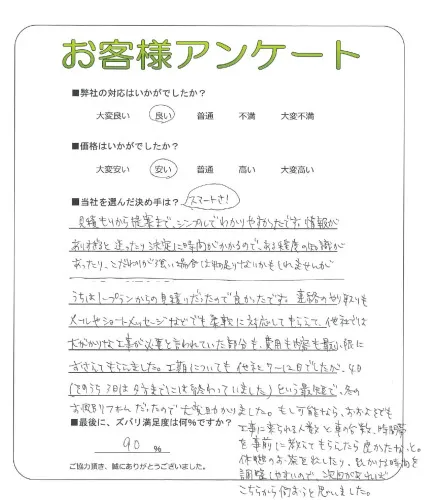 お客様アンケート
■弊社の対応はいかがでしたか?
大変良い 良い 普通 不満 大変不満
■価格はいかがでしたか?
大変安い 安い 普通 高い 大変高い
■当社を選んだ決め手は? スマートさ!
見積もりから提案まで、シンプルでわかりやすかったです 情報が
ありすぎると迷ったり決定に時間がかかるので、ある程度の知識が
あったり、こだわりが強い場合は物足りないかもしれませんが
うちは1プランからの見積りだったので良かったですね 連絡のやり取りも
メールやショートメッセージなどでも柔軟に対応してもらえて、他社では
大がかりな工事が必要と言われていた部分も、費用も内容も最小限に
おさえてもらえました。工期についても他社7~12日でしたが、4日
(そのうち3日は夕方までには終わっていました)という最短で、冬の
お風呂リフォームだったので大変助かりました。もし可能なら、おおよそでも
■最後に、ズバリ満足度は何%ですか?
90 %
工事に来られる人数と車の台数、時間帯
を事前に教えてもらえたら良かったかなと。
休憩のお茶を出したり、出かける時間を
調整しやすいので、次回があれば
こちらから伺おうと思いました。
ご協力頂き、誠にありがとうございました。